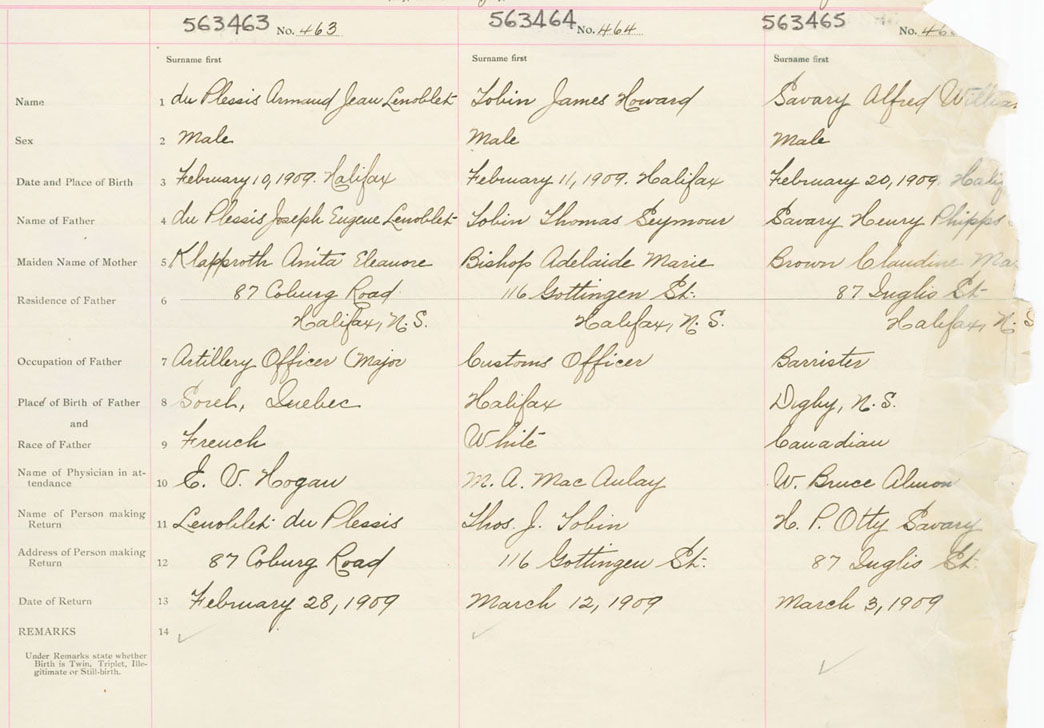 563463 No. 463 563464 No. 464 563465 No.
Surname first Surname first Surname first
Name 1 du Plessis Armand Jean Lenoblet Tobin James Howard Savary Alfred William
Sex 2 Male Male Male
Date and Place of Birth 3 February 10, 1909. Halifax February 11, 1909. Halifax February 20, 1909. Hali
Name of Father 4 du Plessis Joseph Eugene Lenoblet Tobin Thomas Seymour Savary Henry Phipps
Maiden Name of Mother 5 Klapproth Anita Eleanore Bishop Adelaide Marie Brown Claudine
Residence of Father 6 87 Coburg Road 116 Gottingen St. 87 Inglis St
Halifax, N.S. Halifax, N.S. Halifax, N.S
Occupation of Father 7 Artillery Officer (Major Customs Officer Barrister
Place of Birth of Father 8 Sorel, Quebec Halifax Digby, N.S.
and
Race of Father 9 French White Canadian
Name of Physician in at-
tendance 10 E. V. Hogan M. A. Mac Aulay W. Bruce Almon
Name of Person making
Return 11 Lenoblet du Plessis Thos. J. Tobin H. P. Otty Savary
Address of Person making
Return 12 87 Coburg Road 116 Gottingen St. 87 Inglis St.
Date of Return 13 February 28, 1909 March 12, 1909 March 3, 1909
REMARKS 14
Under Remarks state whether
Birth is Twin, Triplet, Ille-
gitimate or Still-birth.